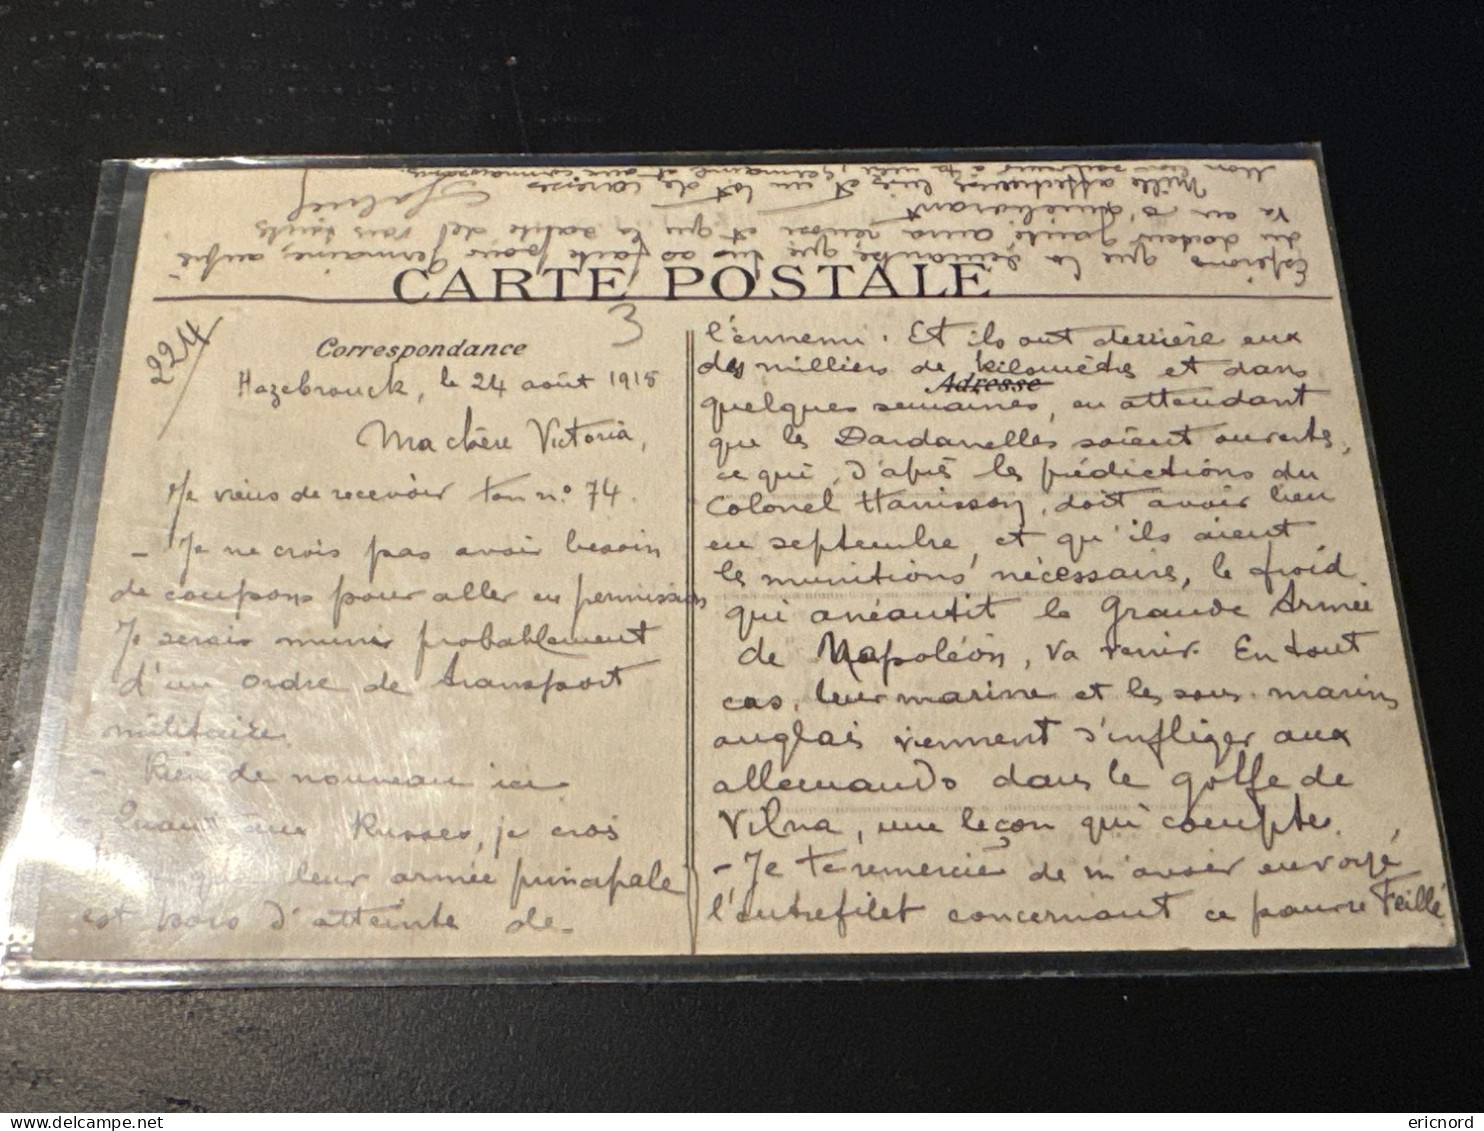 CARTE POSTALE
224
3
Correspondance
Hazebrouck, le 24 août 1915
Ma chère Victoria,
Je viens de recevoir ton n° 74.
- Je ne crois pas avoir besoin
de coupons pour aller en permission
Je serais muni probablement
d'un ordre de transport
militaire.
- Rien de nouveau ici.
Quant aux Russes, je crois
que leur armée principale
est hors d'atteinte de
l'ennemi. Et ils ont derrière eux
des milliers de kilomètres et dans
Adresse
quelques semaines, en attendant
que les Dardanelles soient ouvertes,
ce qui, d'après les prédictions du
Colonel Harrisson, doit avoir lieu
en septembre, et qu'ils aient
les munitions nécessaires, le froid
qui anéantit la Grande Armée
de Napoléon, va venir. En tout
cas, leur marine et les sous-marins
anglais viennent d'infliger aux
allemands dans le golfe de
Vilna, une leçon qui compte.
- Je te remercie de m'avoir envoyé
l'entrefilet concernant ce pauvre Feillé
Espérons que la demande que tu as faite pour Germaine, auprès
du docteur aura réussi et que la santé des
va en s'améliorant
Mille affectueux et un lot de caresses
Mon bon souvenir à ta mère, Germaine et aux connaissances.
Gabriel
ericnord